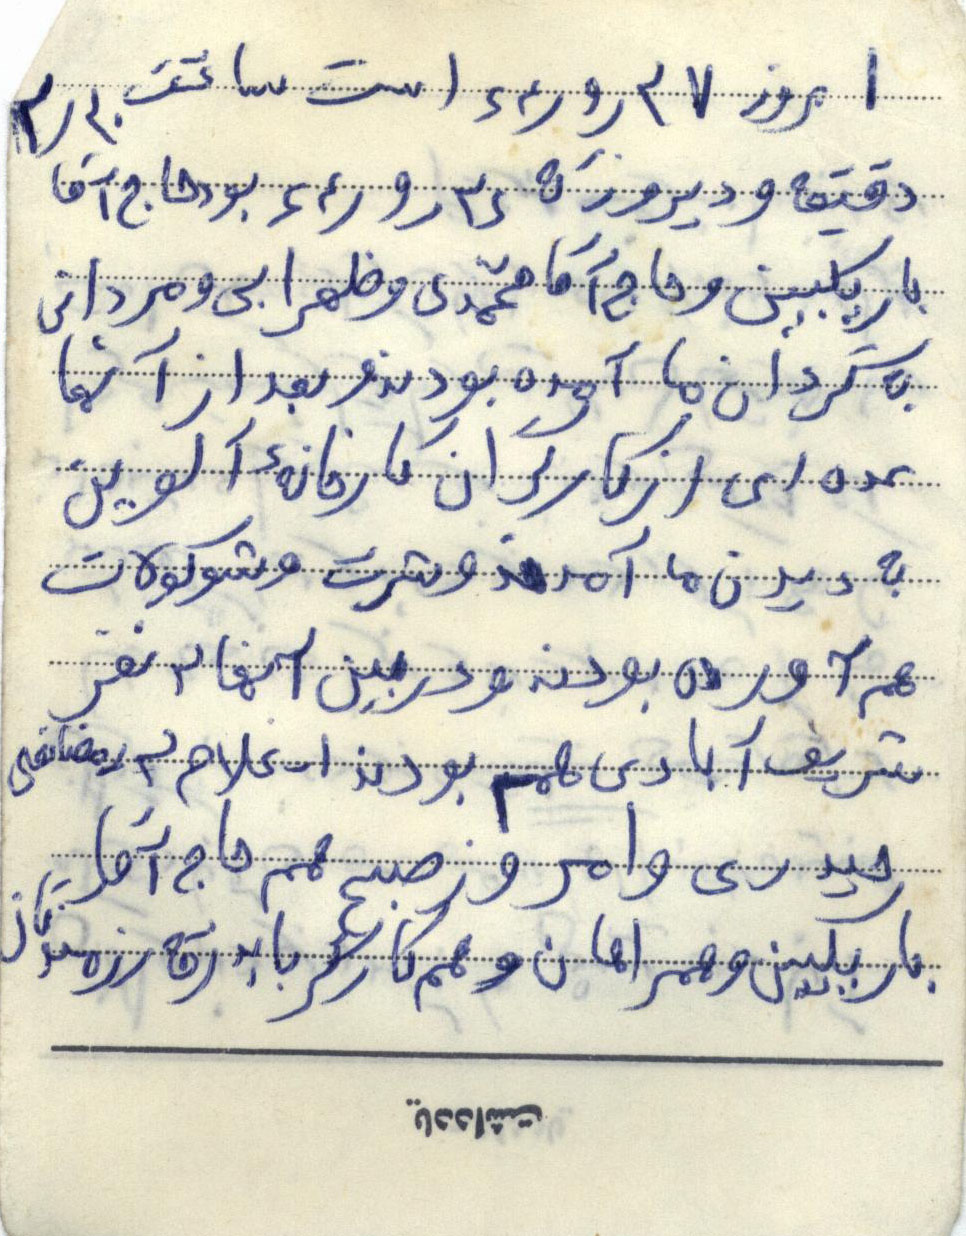 امروز ۳۷ روزه است ساعت
دقیقه و دیروز که ۳۶ روزه بود حاج آقا
باریکبین و حاج آقا محمدی و ظهرابی و مردانی
به گردان ما آمده بودند و بعد از آنها
عده ای از کارگران کارخانهٔ آلوین
به دیدن ما آمدند و شربت و شوکولات
هم آورده بودند و در بین آنها ۲ نفر
شریف آبادی هم بودند ۲ رمضانعلی
حیدری و امروز صبح هم حاج آقا
باریکبین و همراهان و هم کارگر بدرقه رزمندگان
یادداشت